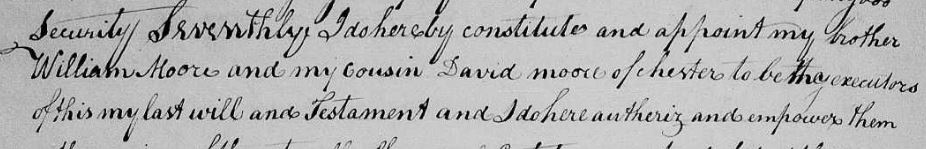 Security Seventhly I do hereby constitute and appoint my brother
William Moore and my cousin David moore of chester to be the executors
of this my last will and Testament and I do here autheriz and empower them